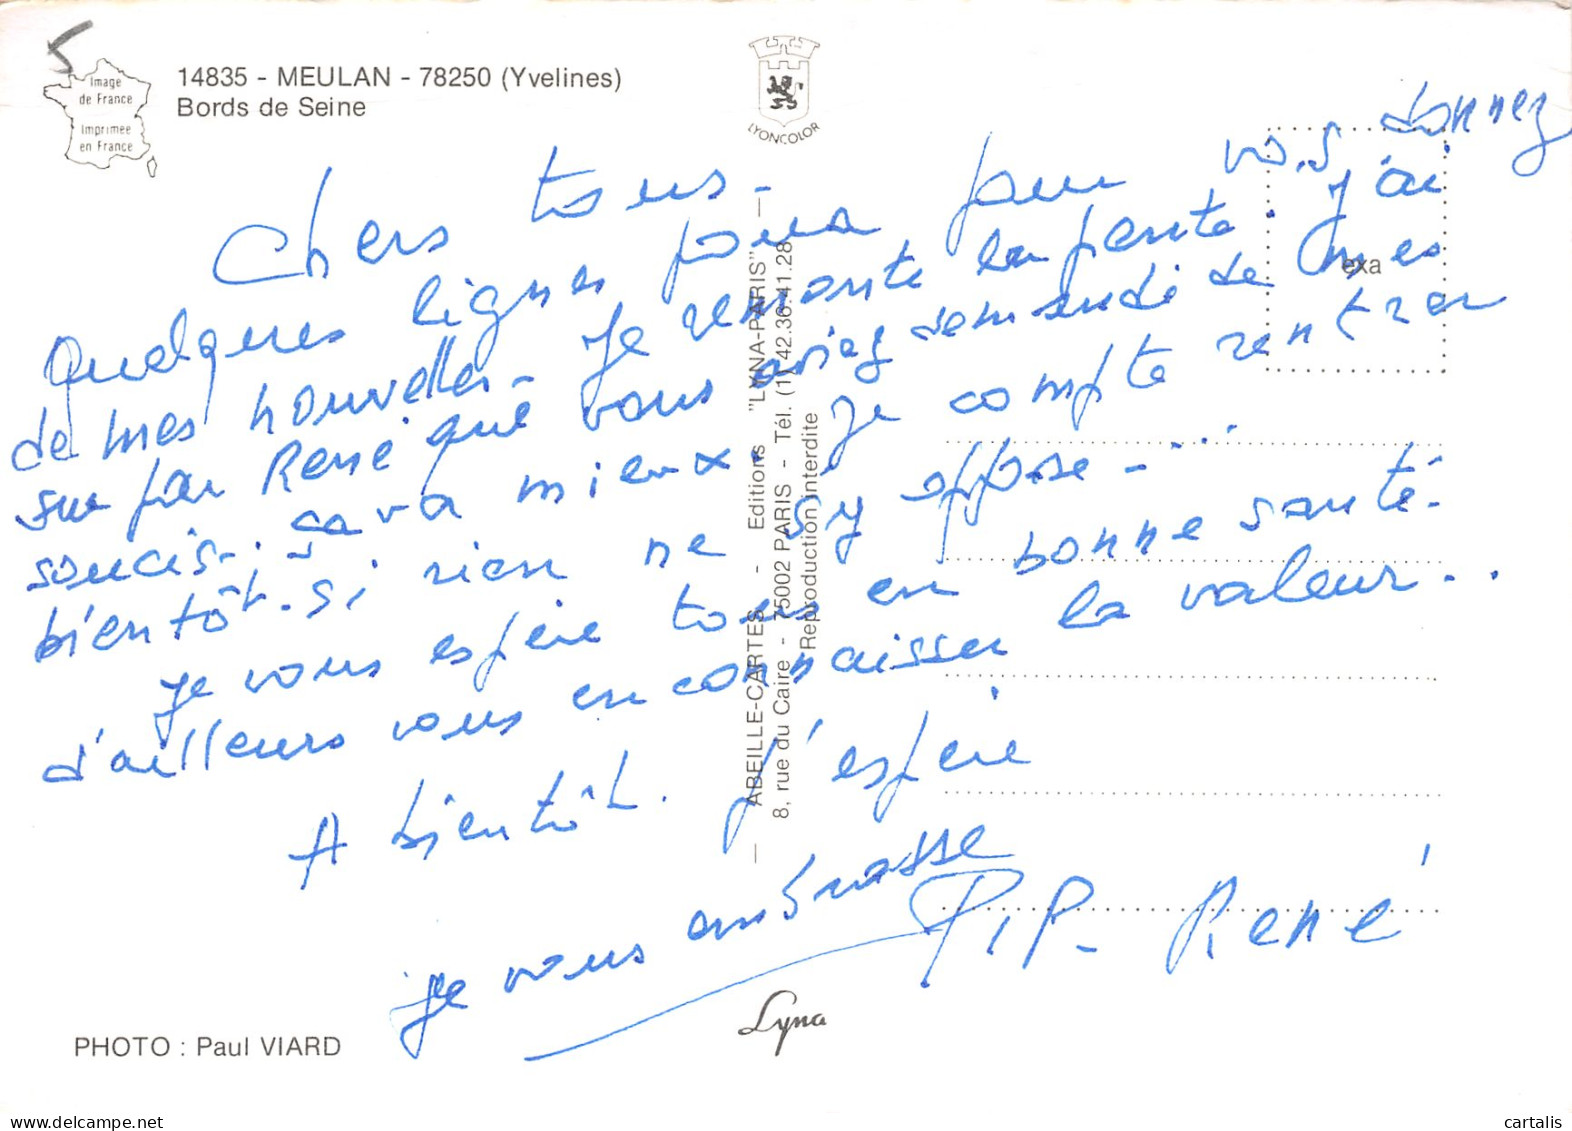 Image
de France
Imprimée
en France
14835 - MEULAN - 78250 (Yvelines)
Bords de Seine
LYONCOLOR
exa
Chers tous -
Quelques lignes pour vous donnez
de mes nouvelles - Je remonte la pente. j'ai
su par René que vous aviez demandé de mes
soucis - ; ça va mieux. Je compte rentrer
bientôt. si rien ne s'y oppose - ...
Je vous espère tous en bonne santé.
d'ailleurs vous en connaisser la valeur...
A bientôt. j'espère
Je vous embrasse
René
— ABEILLE-CARTES - Editions "LYNA-PARIS" —
8, rue du Caire - 75002 PARIS - Tél. (1) 42.36.41.28
Reproduction interdite
Lyna
PHOTO : Paul VIARD
cartalis